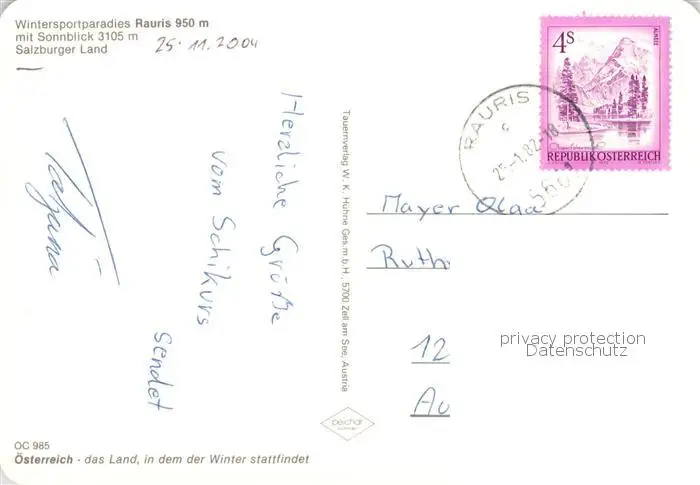 Wintersportparadies Rauris 950 m
mit Sonnblick 3105 m
Salzburger Land
25. 11. 2004
Herzliche Größe
vom Schikurs
sendet
Tatjana
Tauernverlag W. K. Huhne Ges. m. b. H., 5700 Zell am See, Austria
4S
ALMSEE
REPUBLIK ÖSTERREICH
RAURIS
c
25.-1.82-18
Mayer Olga
Ruth
12
Au
privacy protection
Datenschutz
peichar
OC 985
Österreich - das Land, in dem der Winter stattfindet